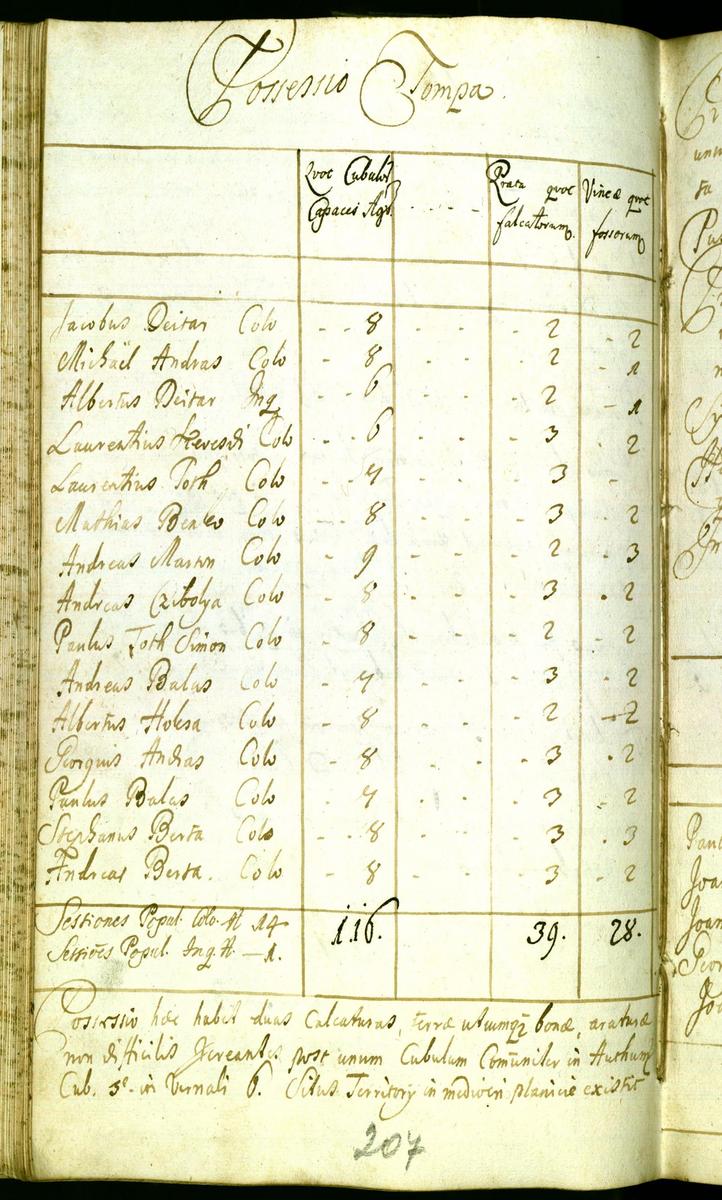 Possessio Tompa.
Quot Cubulor̃ Capaces Agri - - - - Prata quot falcatorum. Vineæ quot fossorum
Jacobus Deitar Colo - - 8 - - - 2 - 2
Michaël Andras Colo - - 8 - - - 2 - 1
Albertus Deitar Inq - - 6 - - - 2 - 1
Laurentius Kevesdi Colo - - 6 - - - 3 - 2
Laurentius Toth Colo - - 7 - - - 3 -
Mathias Benko Colo - - 8 - - - 3 - 2
Andreas Martin Colo - - 9 - - - 2 - 3
Andreas Czibolya Colo - - 8 - - - 3 - 2
Paulus Toth Simon Colo - 8 - - - 2 - 2
Andreas Balas Colo - 7 - - - 3 - 2
Albertus Holsa Colo - 8 - - - 2 - 2
Georgius Andras Colo - 8 - - - 3 - 2
Paulus Balas Colo - 7 - - - 3 - 2
Stephanus Berta Colo - - 8 - - - 3 - 3
Andreas Berta. Colo - - 8 - - - 3 - 2
Sessiones Popul. Colo. H 14 116. 39. 28.
Sessiões Popul. Inq. H. — 1.
Possessio hæc habet duas Calcaturas, terræ utcumqz bonæ, araturæ
non difficilis Jereantes post unum Cubulum Com̃uniter in
Cub. 5 in Vernali 6. Situs Territory in planicie existit
207